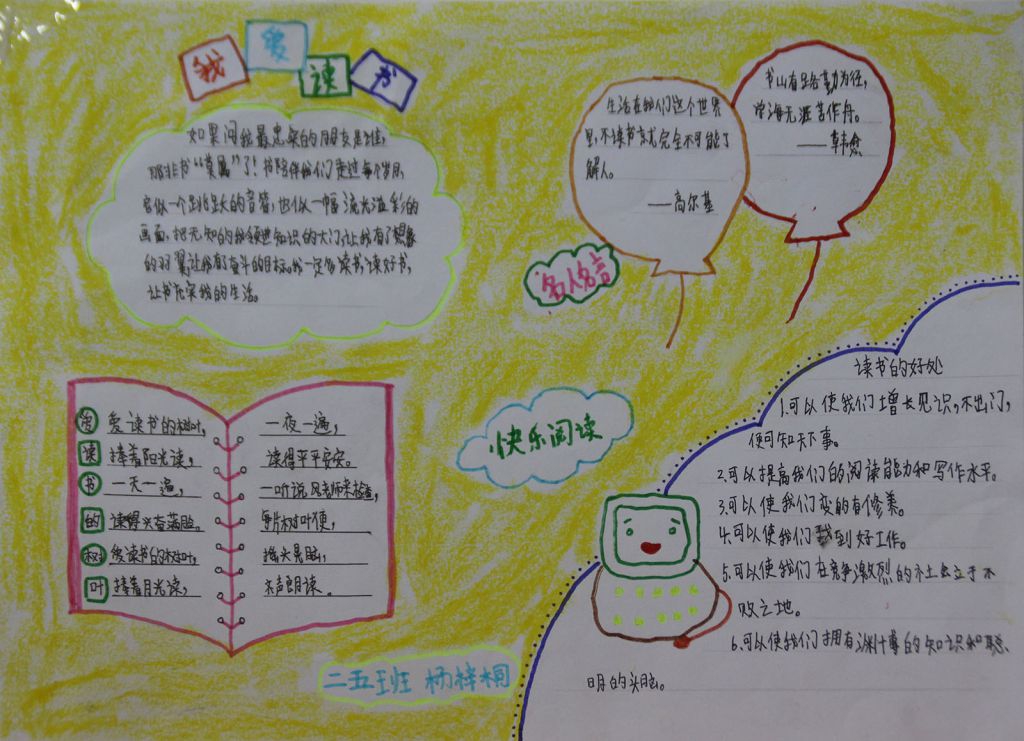 我爱读书
如果问我最忠实的朋友是谁,
那非书“莫属”了!书陪伴我们走过每个岁月,
它似一个跳跃的音符,也似一幅流光溢彩的
画面,把无知的我领进知识的大门,让我有了想象
的羽翼,让我有了奋斗的目标。我一定多读书,读好书,
让书充实我的生活。
生活在我们这个世界
里,不读书就完全不可能了
解人。
——高尔基
书山有路勤为径,
学海无涯苦作舟。
——韩愈
名人名言
爱读书的树叶
爱读书的树叶,
接着阳光读,
一天一遍,
读得兴奋满脸。
爱读书的树叶,
接着月光读,
一夜一遍,
读得平平安安。
一听说风老师来检查,
每片树叶便,
摇头晃脑,
大声朗读。
快乐阅读
读书的好处
1.可以使我们增长见识,不出门,
便可知天下事。
2.可以提高我们的阅读能力和写作水平。
3.可以使我们变的有修养。
4.可以使我们找到好工作。
5.可以使我们在竞争激烈的社会立于不
败之地。
6.可以使我们拥有渊博的知识和聪
明的头脑。
二五班 杨梓桐